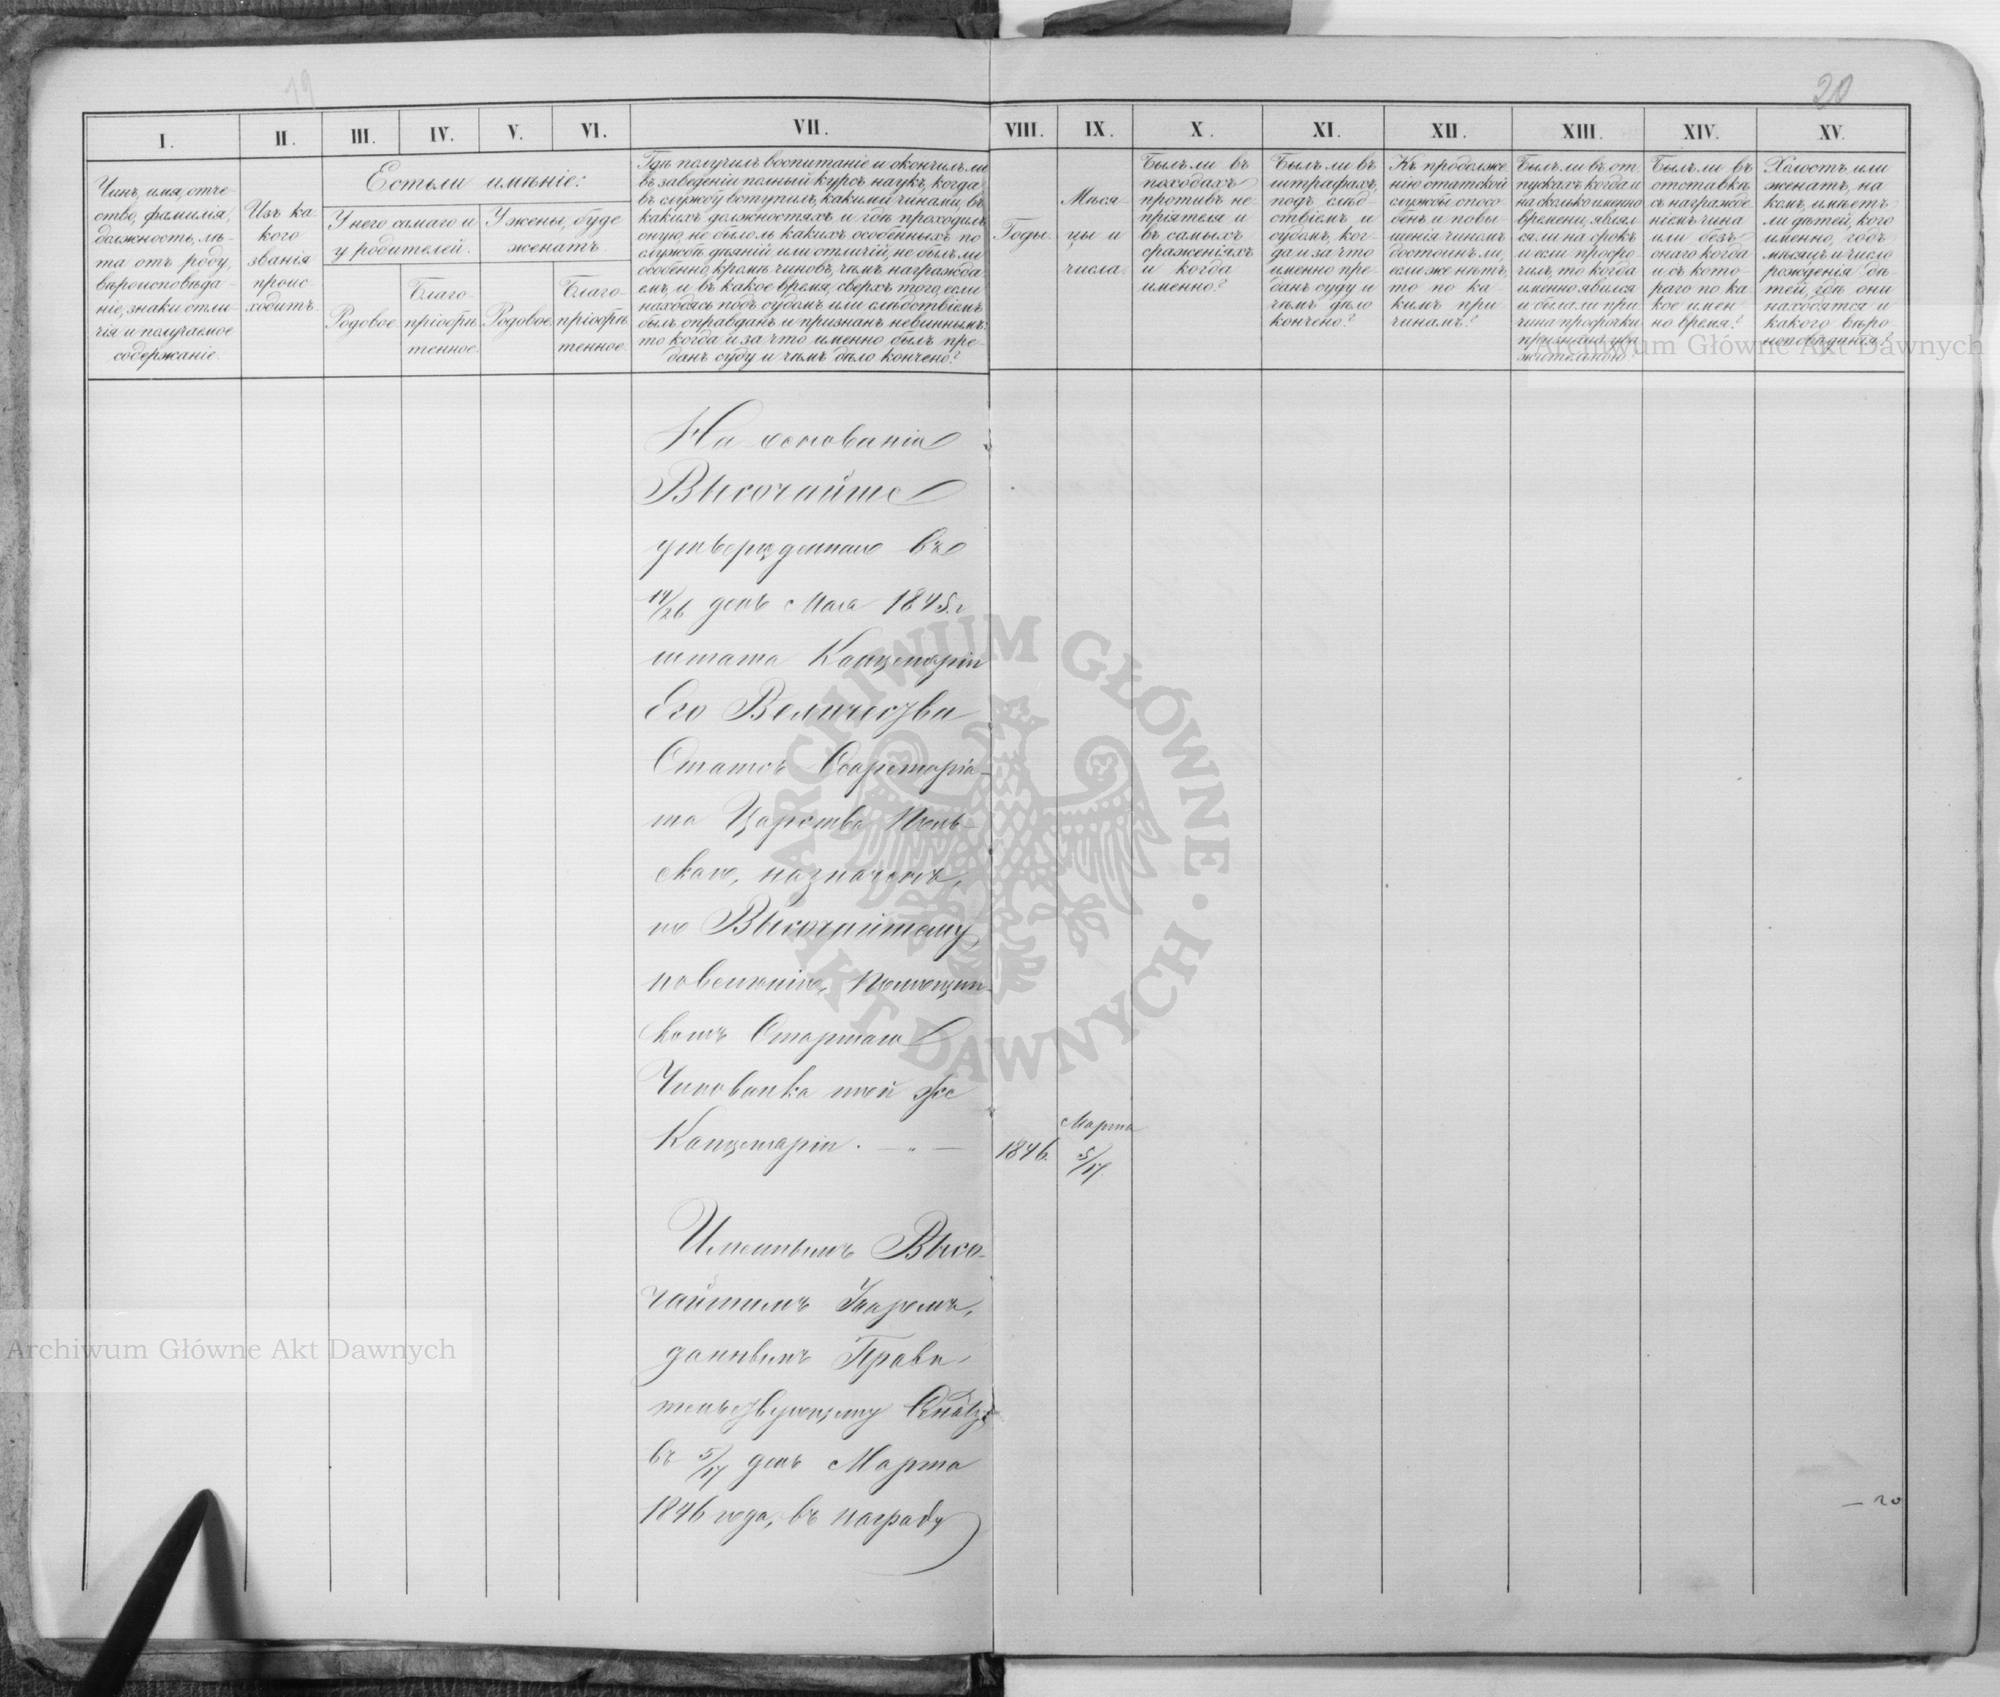 19
20
I.
II.
III.
IV.
V.
VI.
VII.
VIII.
IX.
X.
XI.
XII.
XIII.
XIV.
XV.
Чинъ, имя, отче-
ство, фамилія,
должность, лѣ-
та отъ роду,
вѣроисповѣда-
ніе, знаки отли-
чія и получаемое
содержаніе.
Изъ ка-
кого
званія
проис-
ходитъ.
Есть ли имѣніе:
У него самаго и
у родителей.
У жены, буде
женатъ.
Родовое.
Благо-
пріобрѣ-
тенное.
Родовое.
Благо-
пріобрѣ-
тенное.
Гдѣ получилъ воспитаніе и окончилъ ли
въ заведеніи полный курсъ наукъ, когда
въ службу вступилъ, какими чинами, въ
какихъ должностяхъ и гдѣ проходилъ
оную, не было ль какихъ особенныхъ по
службѣ дѣяній или отличій, не былъ ли
особенно, кромѣ чиновъ, чѣмъ награжда-
емъ, и въ какое время, сверхъ того, если
находясь подъ судомъ или слѣдствіемъ
былъ оправданъ и признанъ невиннымъ:
то когда и за что именно былъ пре-
данъ суду и чѣмъ дѣло кончено?
Годы.
Мѣся-
цы и
числа.
Былъ ли въ
походахъ
противъ не-
пріятеля и
въ самыхъ
сраженіяхъ
и когда
именно?
Былъ ли въ
штрафахъ,
подъ слѣд-
ствіемъ и
судомъ, ког-
да и за что
именно пре-
данъ суду и
чѣмъ дѣло
кончено?
Къ продолже-
нію статской
службы спосо-
бенъ и повы-
шенія чиномъ
достоинъ ли,
если же нѣтъ,
то по ка-
кимъ при-
чинамъ?
Былъ ли въ от-
пускахъ, когда и
на сколько именно
времени, являл-
ся ли на срокъ
и если просро-
чилъ, то когда
именно явился
и была ли при-
чина просрочки
признана ува-
жительною?
Былъ ли въ
отставкѣ
съ награжде-
ніемъ чина
или безъ
онаго когда
и съ кото-
раго по ка-
кое имен-
но время?
Холостъ или
женатъ, на
комъ, имѣетъ
ли дѣтей, кого
именно, годъ
мѣсяцъ и число
рожденія дѣ-
тей, гдѣ они
находятся и
какого вѣро-
исповѣданія?
На основаніи
Высочайше
утвержденнаго въ
14/26 день Мая 1845 г.
штата Канцеляріи
Его Величества
Статсъ Секретаріа-
та Царства Поль-
скаго, назначенъ,
по Высочайшему
повелѣнію, Помощни-
комъ Старшаго
Чиновника той же
Канцеляріи.
1846.
Марта
5/17.
Именнымъ Высо-
чайшимъ Указомъ,
даннымъ Прави-
тельствующему Сенату,
въ 5/17 день Марта
1846 года, въ награду
– 20
Archiwum Główne Akt Dawnych
Archiwum Główne Akt Dawnych
ARCHIWUM GŁÓWNE AKT DAWNYCH